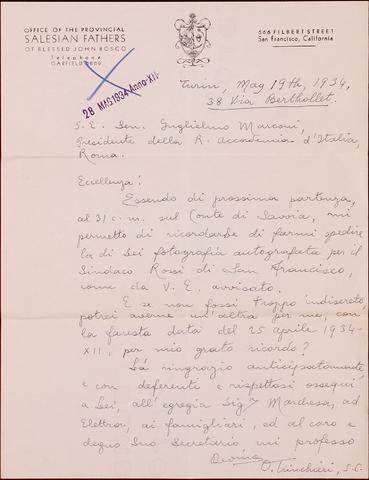 OFFICE OF THE PROVINCIAL
SALESIAN FATHERS
OF BLESSED JOHN BOSCO
Telephone
GARFIELD 0809
666 FILBERT STREET
San Francisco, California
28 MAG 1934 Anno XII
Turin, Mag 19th, 1934,
38 Via Berthollet.
S. E. Sen. Guglielmo Marconi,
Presidente della R. Accademia d'Italia,
Roma.
Eccellenza:
Essendo di prossima partenza,
al 31 c. m. sul Conte di Savoia, mi
permetto di ricordarle di farmi spedire
la di Lei fotografia autografata per il
Sindaco Rossi di San Francisco,
come da V. E. avvisato.
E se non fossi troppo indiscreto,
potrei averne un'altra per me, con
la fausta data del 25 aprile 1934-
XII, per mio grato ricordo?
La ringrazio anticipatamente
e con deferenti e rispettosi ossequi
a Lei, all'egregia Sig.ra Marchesa, ad
Elettra, ai famigliari, ed al caro e
degno Suo Secretario mi professo
Devmo
O. Trinchieri, S.C.